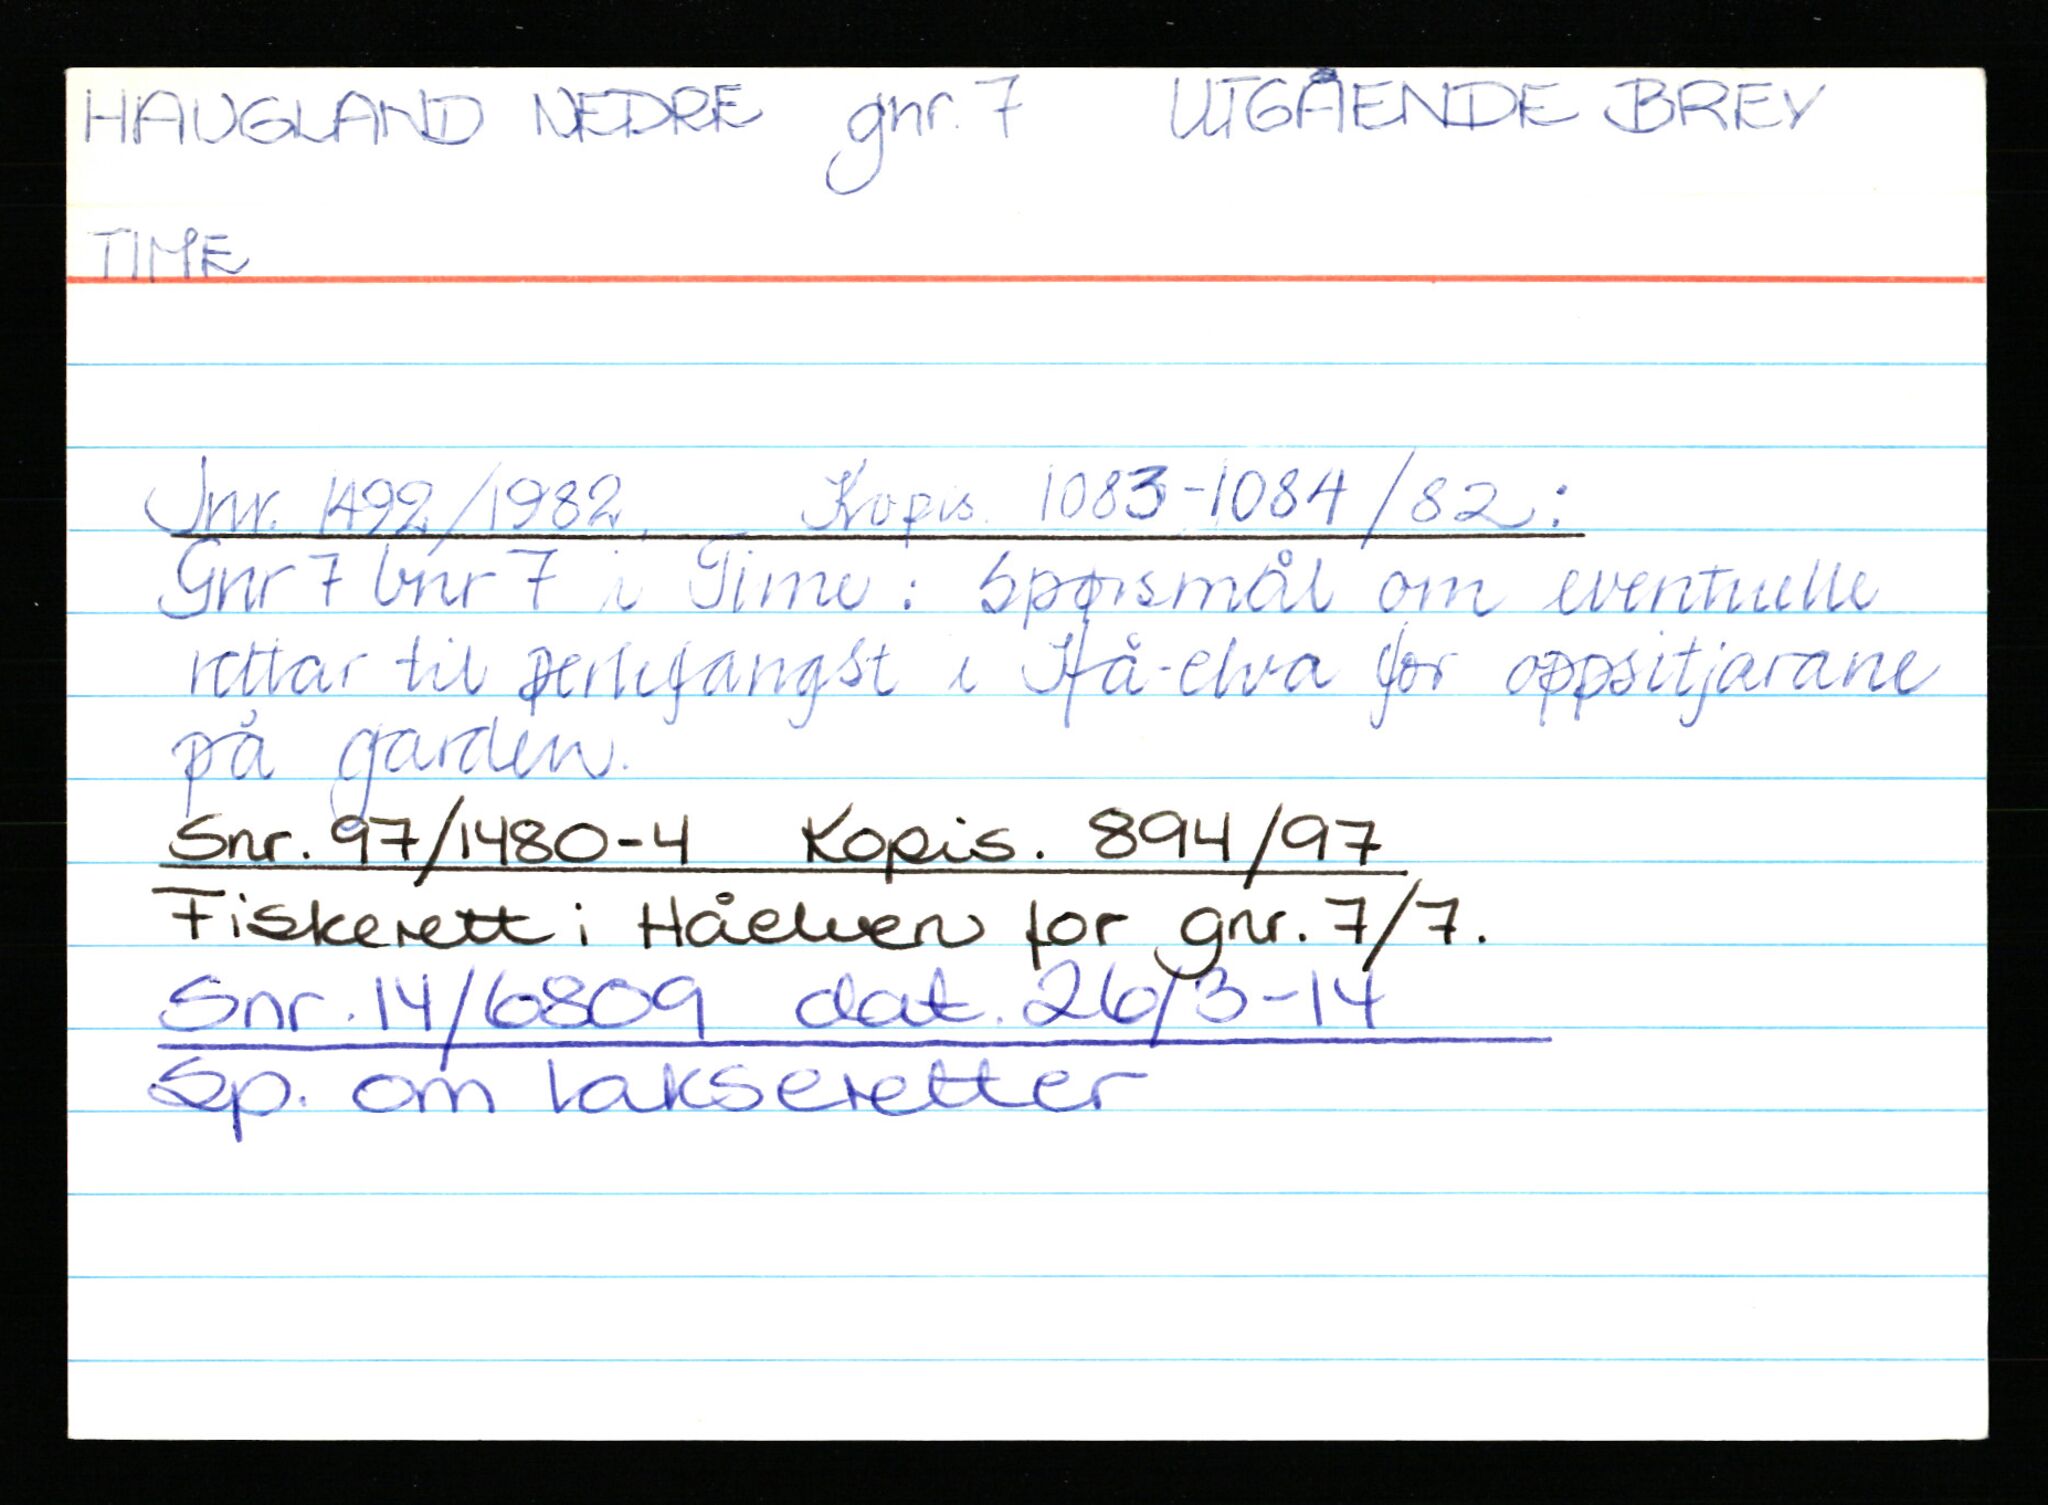 HAUGLAND NEDRE gnr. 7 UTGÅENDE BREV
TIME
Jnr. 1492/1982, Kopis. 1083-1084/82:
Gnr 7 bnr 7 i Time: Spørsmål om eventuelle
rettar til perlefangst i Hå-elva for oppsitjarane
på garden.
Snr. 97/1480-4 Kopis. 894/97
Fiskerett i Håelven for gnr. 7/7.
Snr. 14/6809 dat. 26/3-14
Sp. om lakseretter